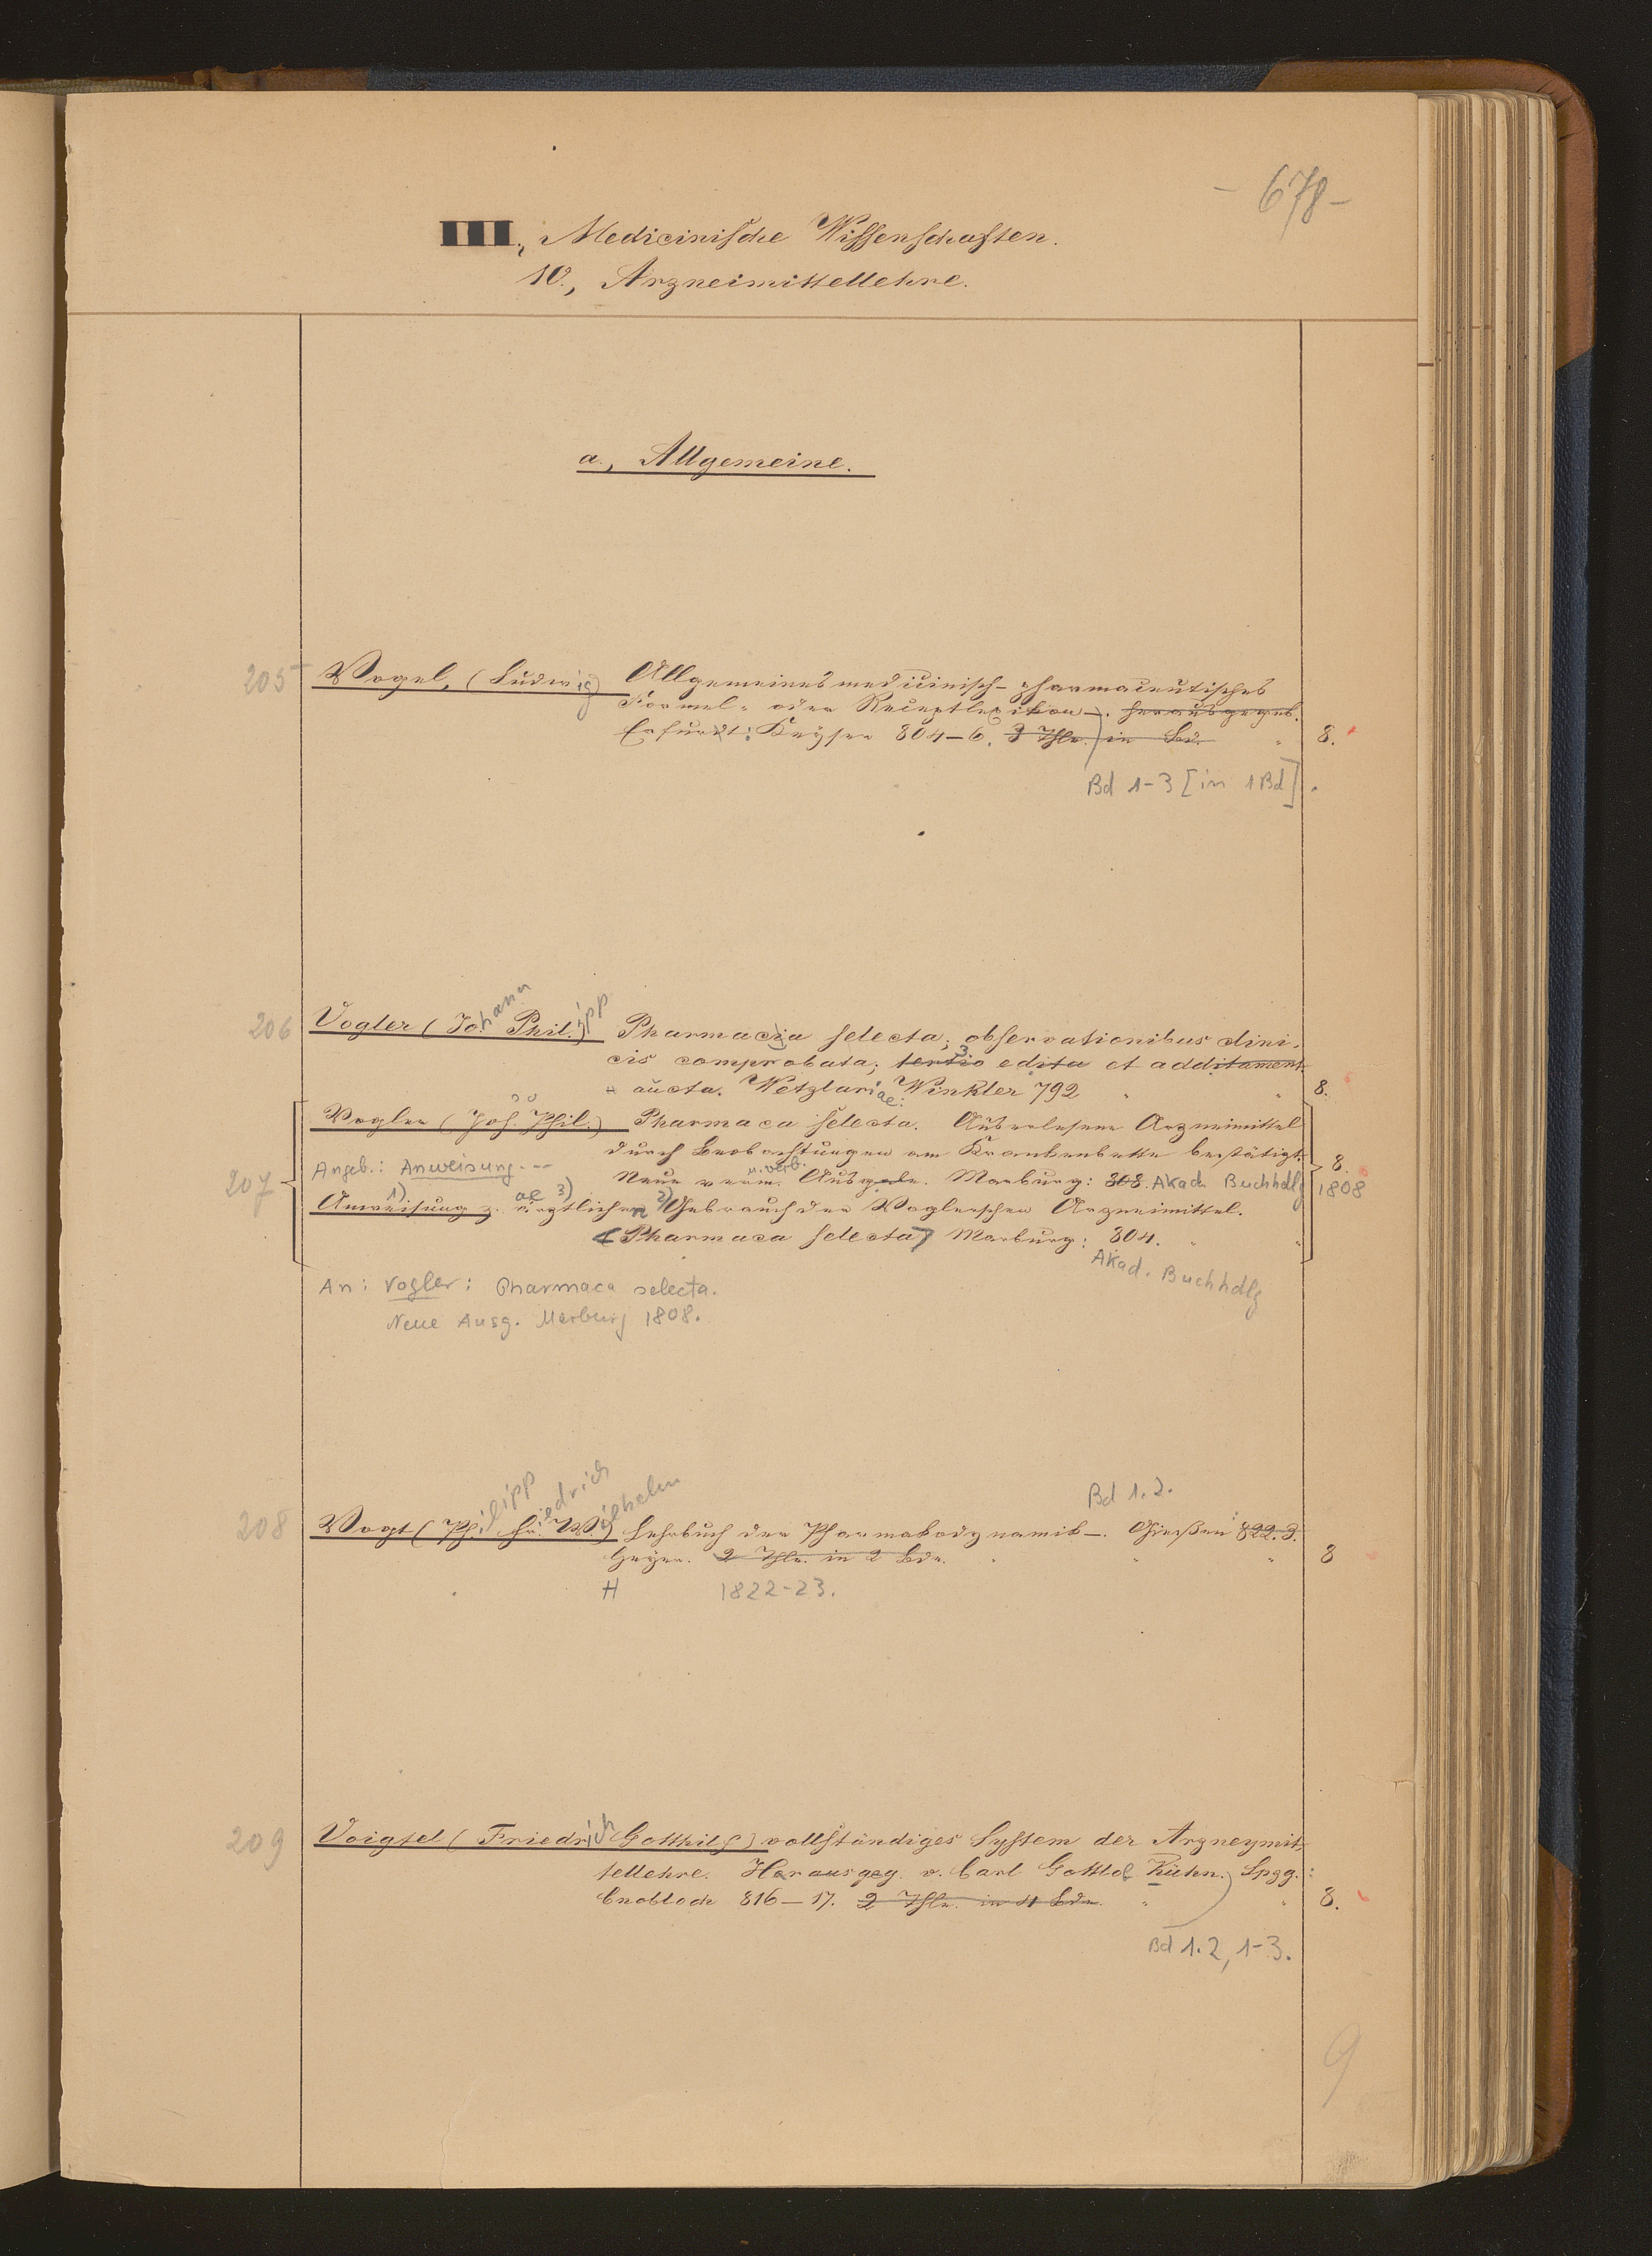 - 678 -
III., Medicinische Wissenschaften.
10., Arzneimittellehre.
a., Allgemeine.
205 Vogel, (Ludwig) Allgemeines medicinisch-pharmaceutisches
Formel- oder Receptlexikon –. herausgegeb.
Erfurt: Keyser 804–6. 3 Thle. in Bd. " 8.
Bd 1-3 [in 1 Bd]
206 Vogler (Johann Philipp) Pharmaca selecta, observationibus clini-
cis comprobata; tertio 3 edita et additament.
aucta. Wetzlariae: Winkler 792 " " 8.
Vogler (Joh. Phil.) Pharmaca selecta. Auserlesene Arzneimittel
durch Beobachtungen am Krankenbette bestätigt.
207 Angeb.: Anweisung. --- Neue verm. u. verb. Ausgabe. Marburg: 808. Akad. Buchhdlg 8. 1808
Anweisung 1) z. ärztlichen ae 3) 2) Gebrauch der Voglerschen Arzneimittel.
(Pharmaca selecta) Marburg: 804. " "
Akad. Buchhdlg
An: Vogler: Pharmaca selecta.
Neue Ausg. Marburg 1808.
Bd 1.2.
208 Vogt (Philipp Friedrich Wilhelm) Lehrbuch der Pharmakodynamik –. Gießen: 822.3.
Heyer. 2 Thle. in 2 Bde. " " " 8
H 1822-23.
209 Voigtel (Friedrich Gotthilf) vollständiges System der Arzneymit-
tellehre. Herausgeg. v. Carl Gottlob Kühn. Lpzg.:
Cnobloch 816–17. 2 Thle. in 4 Bde. " " 8.
Bd 1.2, 1-3.
9